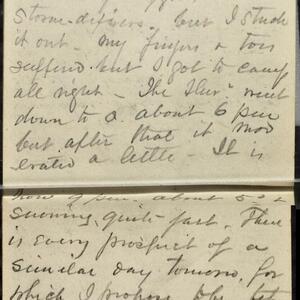 storm-drifters. but I stuck
it out - my fingers & toes
suffered but I got to camp
all right - The Ther' went
down to 0. about 6 pm
but after that it mod
erated a little - It is
now 9 pm. about 5° &
snowing quite fast. There
is every prospect of a
similar day tomorro, for
which I propose